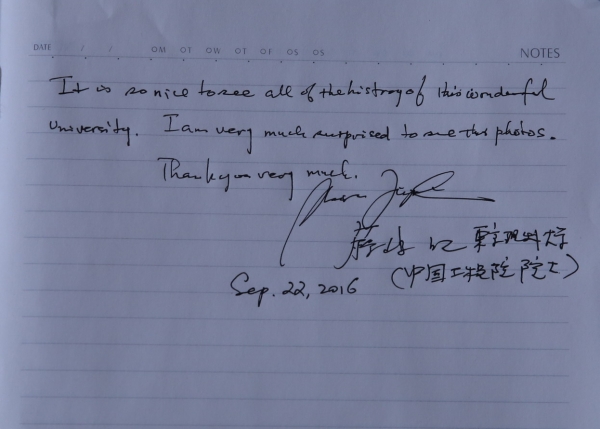 DATE / / OM OT OW OT OF OS OS NOTES
It is so nice to see all of the histroy of this wonderful
University. I am very much surprised to see this photos.
Thank you very much.
藤嶋 昭 東京理科大学
(中国工程院院士)
Sep. 22, 2016